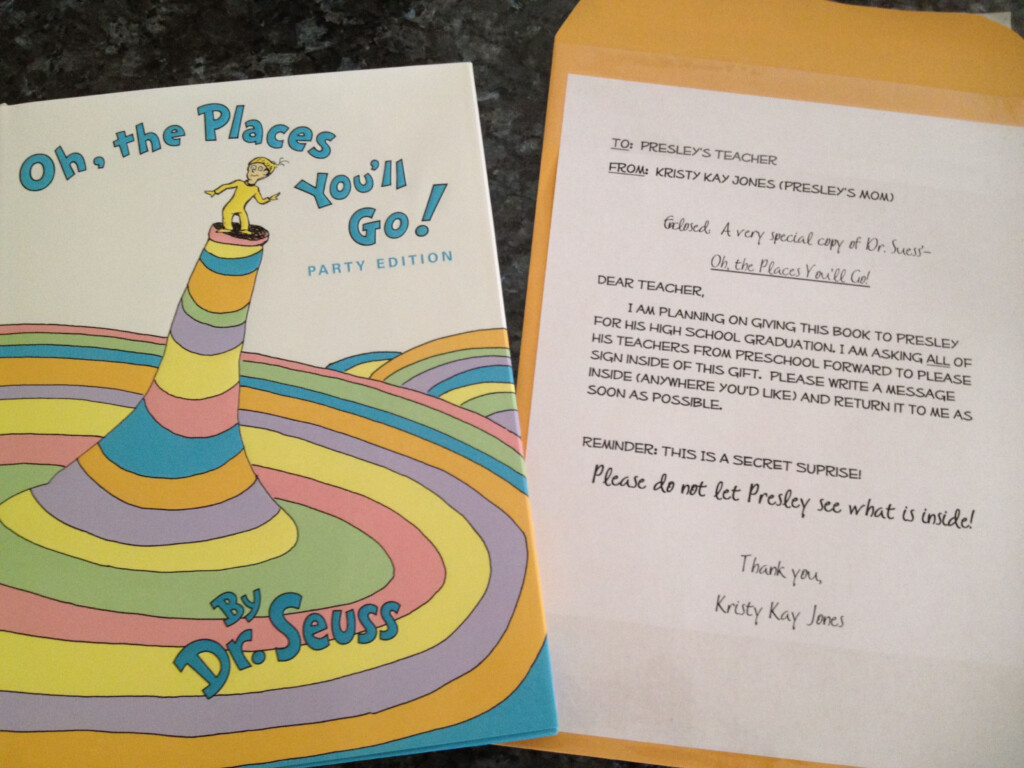 Oh, the Places
You'll
Go!
PARTY EDITION
By
Dr. Seuss
TO: PRESLEY'S TEACHER
FROM: KRISTY KAY JONES (PRESLEY'S MOM)
Enclosed, A very special copy of Dr. Suess'-
Oh, the Places You'll Go!
DEAR TEACHER,
I AM PLANNING ON GIVING THIS BOOK TO PRESLEY
FOR HIS HIGH SCHOOL GRADUATION. I AM ASKING ALL OF
HIS TEACHERS FROM PRESCHOOL FORWARD TO PLEASE
SIGN INSIDE OF THIS GIFT. PLEASE WRITE A MESSAGE
INSIDE (ANYWHERE YOU'D LIKE) AND RETURN IT TO ME AS
SOON AS POSSIBLE.
REMINDER: THIS IS A SECRET SUPRISE!
Please do not let Presley see what is inside!
Thank you,
Kristy Kay Jones